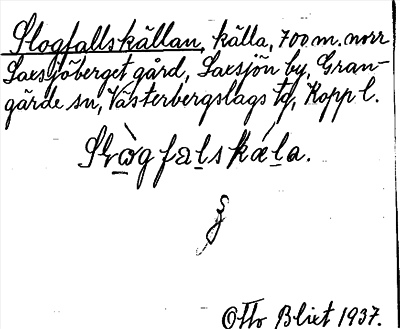 Slogfallskällan, källa, 700 m. norr
Saxsjöberget gård, Saxsjön by, Gran-
gärde sn, Västerbergslags td, Kopp l.
Slògfalskǽla.
Otto Blixt 1937.